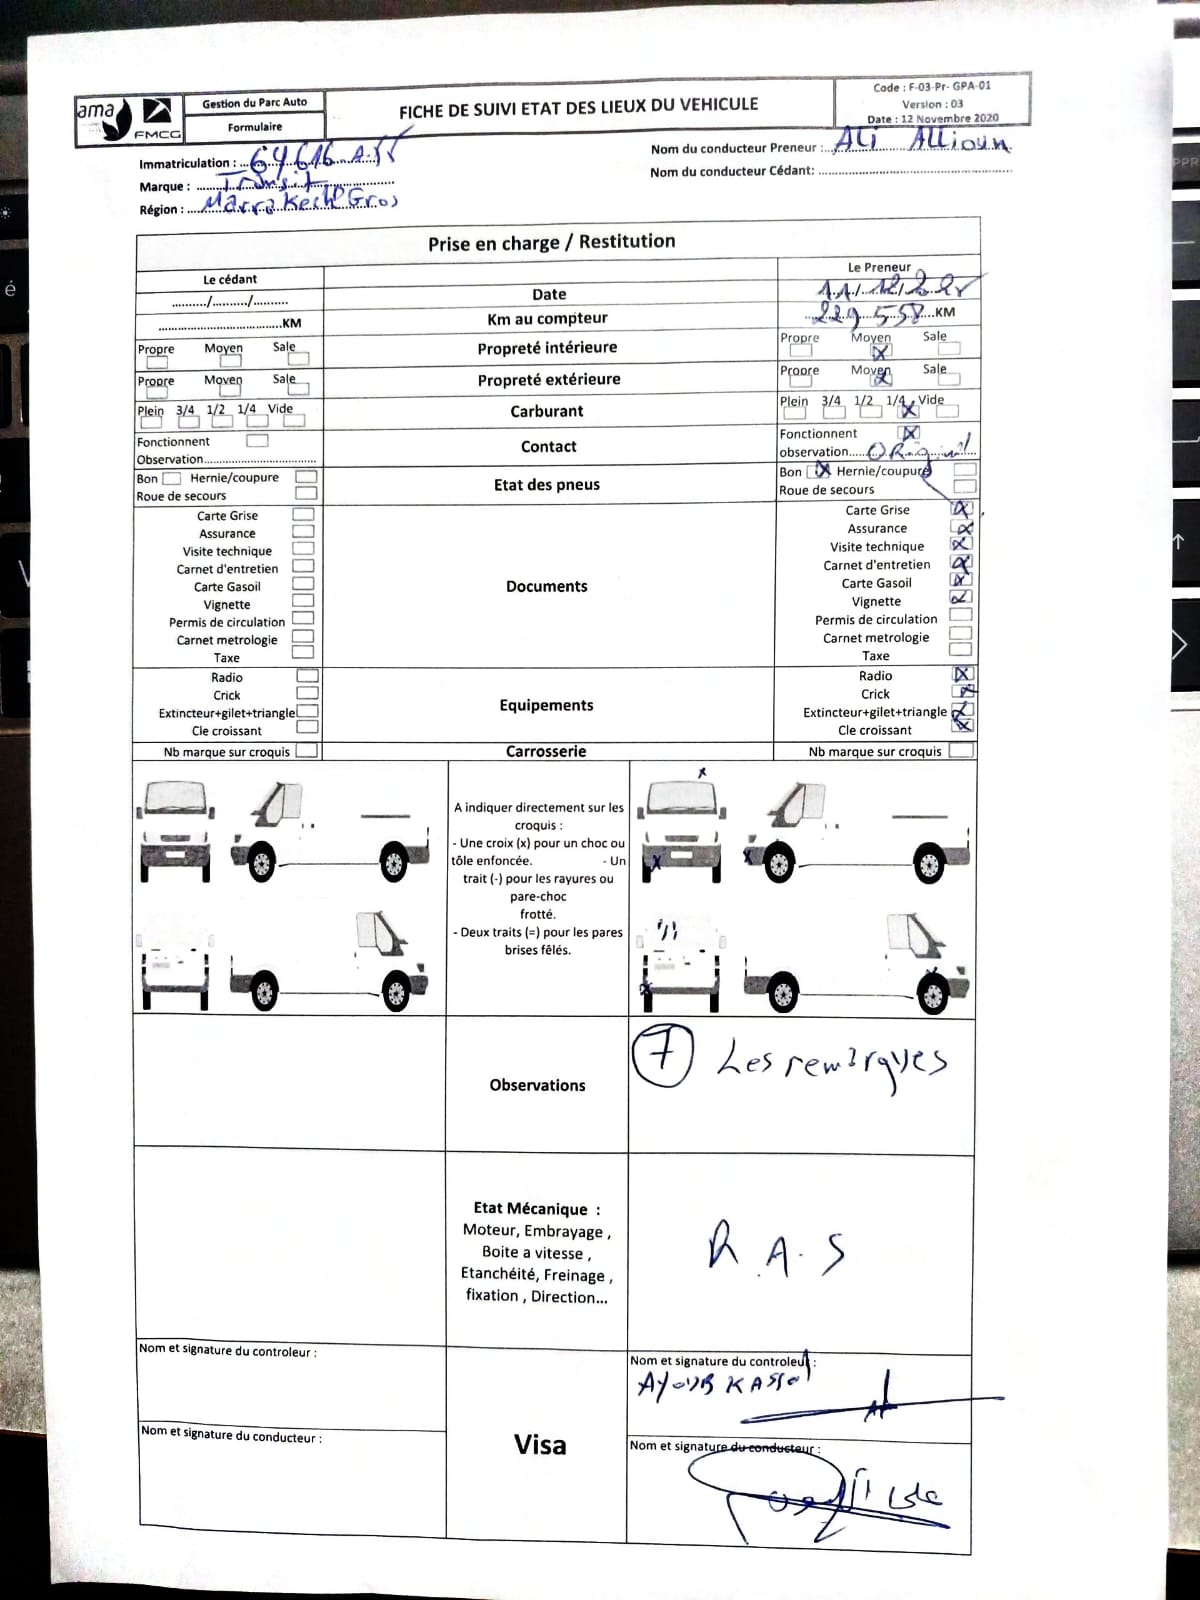 ama
FMCG
Gestion du Parc Auto
Formulaire
FICHE DE SUIVI ETAT DES LIEUX DU VEHICULE
Code : F-03-Pr- GPA-01
Version : 03
Date : 12 Novembre 2020
Immatriculation : 64616 A
Marque : Transit
Région : Marrakech Gros
Nom du conducteur Preneur : ALi ALLioun
Nom du conducteur Cédant:
Prise en charge / Restitution
Le cédant
Le Preneur
........../........./..........
Date
11/12/2
.......................................KM
Km au compteur
229 558 KM
Propre Moyen Sale
Propreté intérieure
Propre Moyen Sale
Propre Moyen Sale
Propreté extérieure
Propre Moyen Sale
Plein 3/4 1/2 1/4 Vide
Carburant
Plein 3/4 1/2 1/4 Vide
Fonctionnent
Observation
Contact
Fonctionnent
observation ORiginal
Bon Hernie/coupure
Roue de secours
Etat des pneus
Bon Hernie/coupure
Roue de secours
Carte Grise
Assurance
Visite technique
Carnet d'entretien
Carte Gasoil
Vignette
Permis de circulation
Carnet metrologie
Taxe
Documents
Carte Grise
Assurance
Visite technique
Carnet d'entretien
Carte Gasoil
Vignette
Permis de circulation
Carnet metrologie
Taxe
Radio
Crick
Extincteur+gilet+triangle
Cle croissant
Equipements
Radio
Crick
Extincteur+gilet+triangle
Cle croissant
Nb marque sur croquis
Carrosserie
Nb marque sur croquis
A indiquer directement sur les
croquis :
- Une croix (x) pour un choc ou
tôle enfoncée. - Un
trait (-) pour les rayures ou
pare-choc
frotté.
- Deux traits (=) pour les pares
brises fêlés.
Observations
7 Les remarques
Etat Mécanique :
Moteur, Embrayage ,
Boite a vitesse ,
Etanchéité, Freinage ,
fixation , Direction...
R.A.S
Nom et signature du controleur :
Nom et signature du conducteur :
Visa
Nom et signature du controleur :
AyouB KASSo
Nom et signature du conducteur :